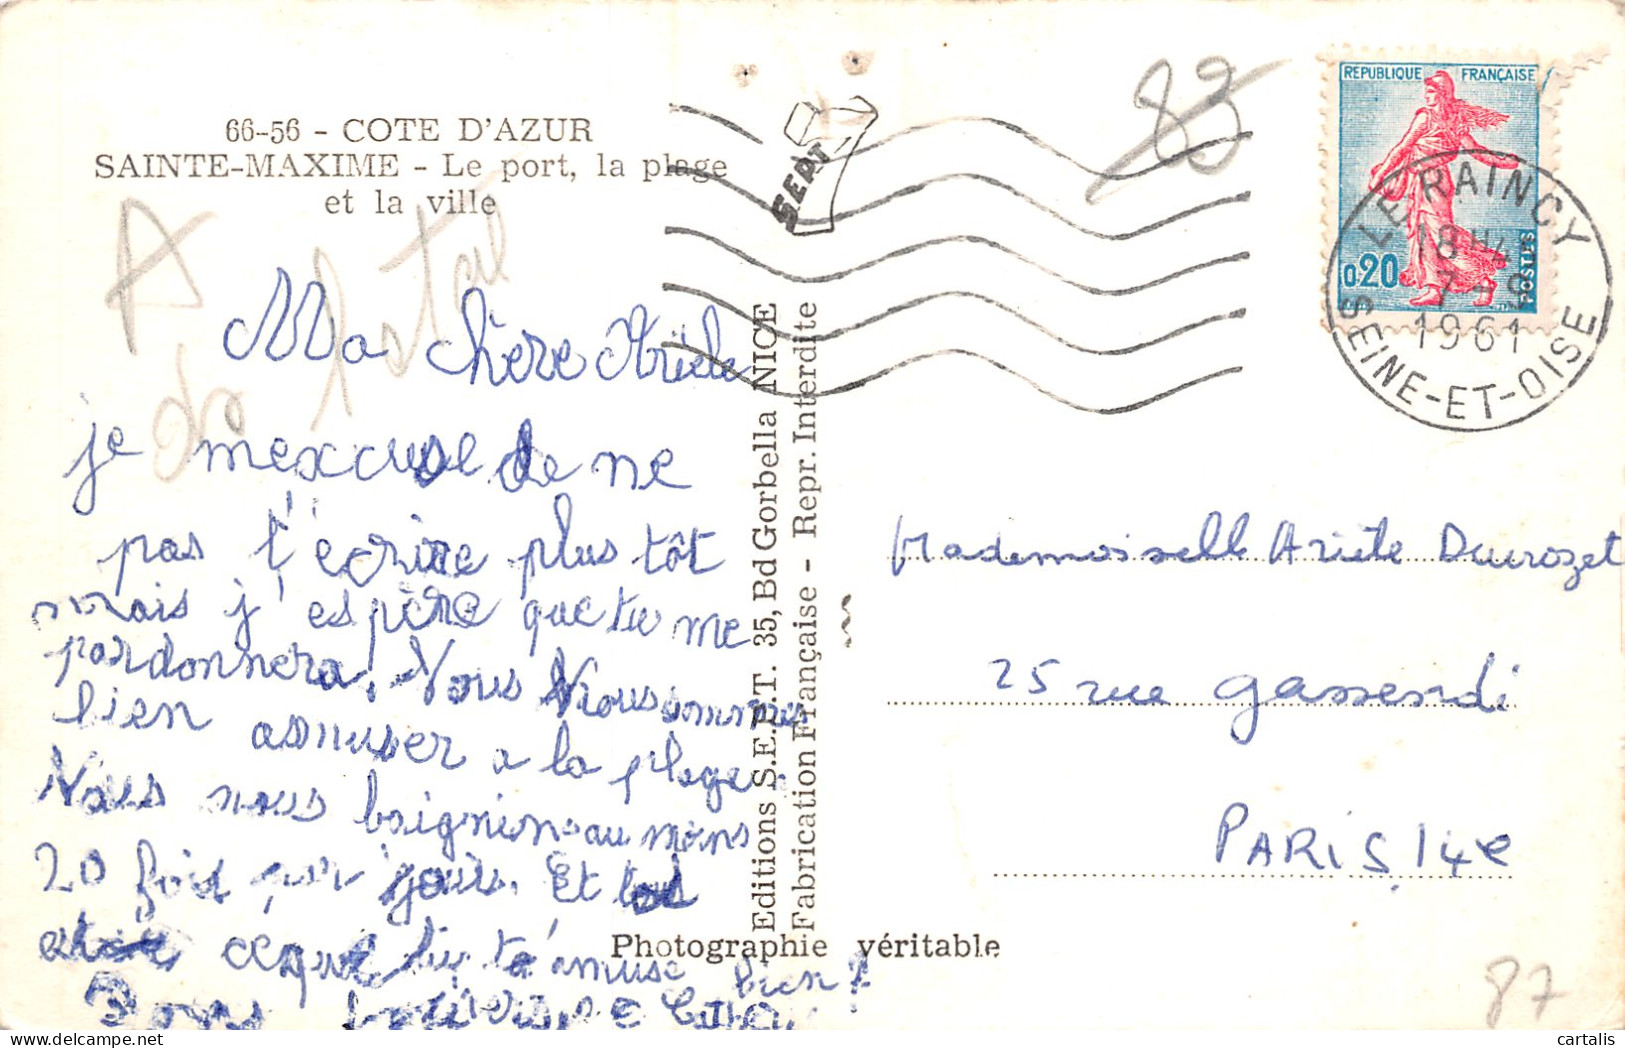 66-56 - COTE D'AZUR
SAINTE-MAXIME - Le port, la plage
et la ville
83
SEPT
REPUBLIQUE FRANÇAISE
0,20
POSTES
LE RAINCY
18 H
7 - 9
1961
SEINE-ET-OISE
Ma chère Arièle
je mexcuse de ne
pas t'écrire plus tôt
mais j'espère que tu me
pardonnera! Nous Nous sommes
bien asmuser a la plage
Nous nous baignions au moins
20 fois par jours. Et
céque tu t'amuse bien?
Bons
Editions S.E.P.T. 35, Bd Gorbella NICE
Fabrication Française - Repr. Interdite
Photographie véritable
Mademoiselle Arièle Durozet
25 rue Gassendi
PARIS 14e
87
cartalis